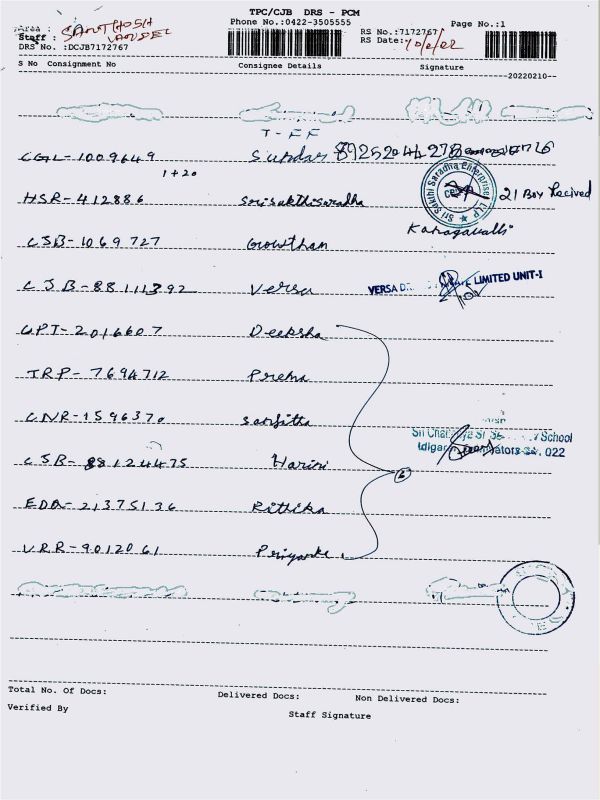 TPC/CJB DRS - PCM
Phone No.:0422-3505555
Page No.:1
Area :
Staff : SANTHOSH
DRS No. :DCJB7172767
RS No.:7172767
RS Date: 10/2/22
S No Consignment No Consignee Details Signature
20220210
T-FF
CGL-1009649 Sundar 8925204427
1+20
HSR-412886 Srisakthisaradha Sri Sakthi Saradha Enterprise LLP 21 Box Recived
Kanagavalli
CSB-1069727 Gowtham
CJB-88111392 Versa VERSA LIMITED UNIT-I
GPT-2016607 Deeksha
TRP-7694712 Prema
CNR-1596370 Sanjitha
School
CSB-88124475 Harini 6 022
EDA-21375136 Rithika
VRR-9012061 Priyanka
Total No. Of Docs: Delivered Docs: Non Delivered Docs:
Verified By Staff Signature